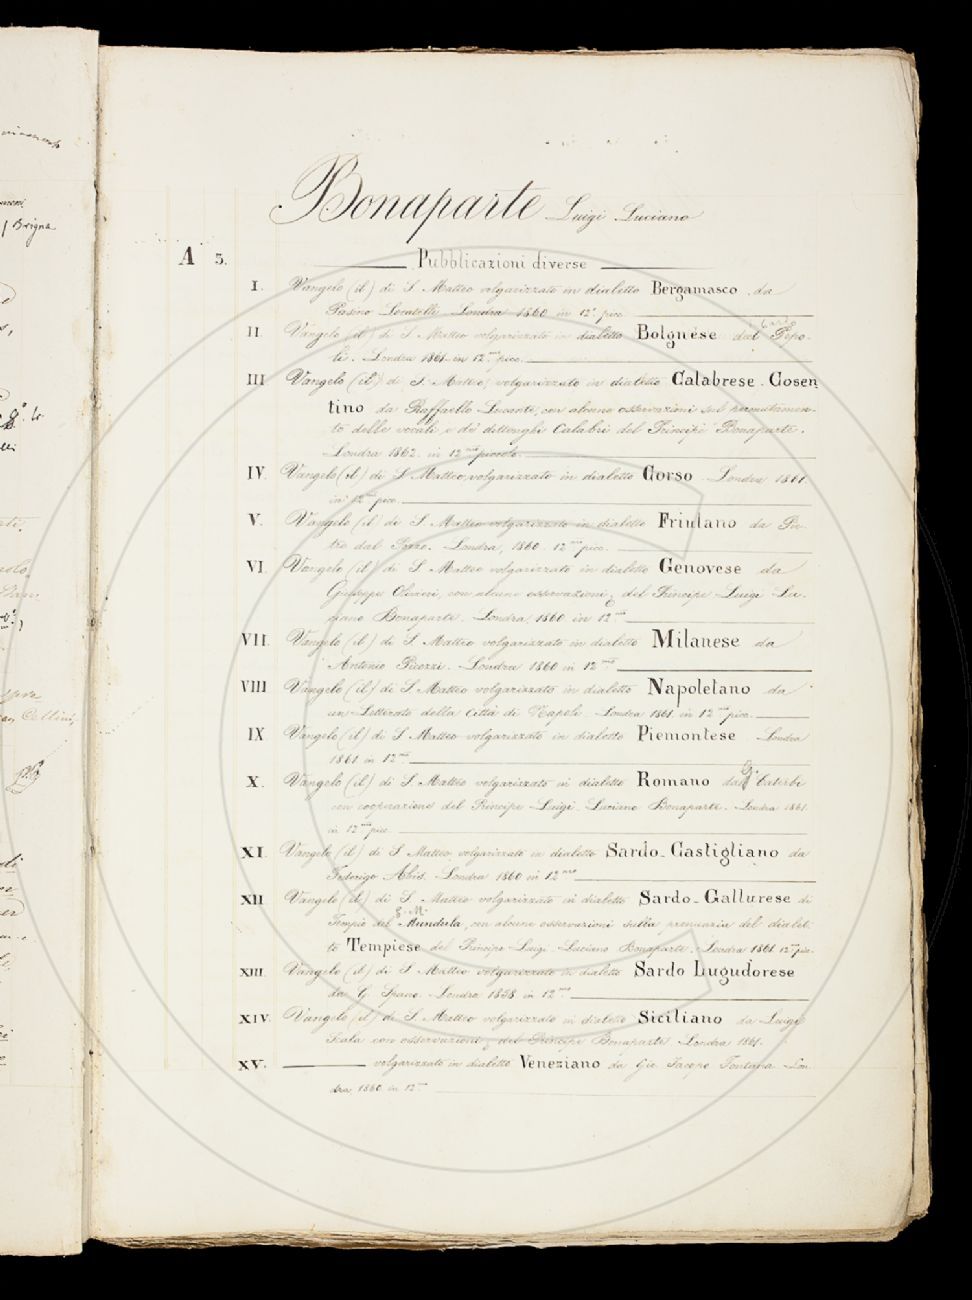 Bonaparte Luigi Luciano
A 5. Pubblicazioni diverse
I. Vangelo (il) di S. Matteo volgarizzato in dialetto Bergamasco da
Pasino Locatelli Londra 1860 in 12° picc.
II. Vangelo (il) di S. Matteo volgarizzato in dialetto Bolgnése dal Pepo-
li. Londra 1861 in 12.mo picc.
III Vangelo (il) di S. Matteo, volgarizzato in dialetto Calabrese-Cosen
tino da Raffaello Lucente, con alcune osservazioni sul permutamen-
to delle vocali, e de' dittonghi Calabri del Principe Bonaparte.
Londra 1862. in 12.mo piccolo.
IV. Vangelo (il) di S. Matteo, volgarizzato in dialetto Corso. Londra 1861.
in 12.mo picc.
V. Vangelo (il) di S. Matteo volgarizzato in dialetto Friulano da Pie-
tro dal Pozzo. Londra, 1860. 12.mo picc.
VI. Vangelo (il) di S. Matteo volgarizzato in dialetto Genovese da
Giuseppe Olivieri, con alcune osservazioni del Principe Luigi Lu-
ciano Bonaparte. Londra, 1860 in 12.mo
VII. Vangelo (il) di S. Matteo volgarizzato in dialetto Milanese da
Antonio Picozzi. Londra 1860 in 12.mo
VIII Vangelo (il) di S. Matteo volgarizzato in dialetto Napoletano da
un Letterato della Città di Napoli. Londra 1861. in 12.mo picc.
IX. Vangelo (il) di S. Matteo volgarizzato in dialetto Piemontese. Londra
1861 in 12.mo
X. Vangelo (il) di S. Matteo volgarizzato in dialetto Romano dal G. Caterbi
con cooperazione del Principe Luigi Luciano Bonaparte. Londra 1861.
in 12.mo picc.
XI. Vangelo (il) di S. Matteo volgarizzato in dialetto Sardo-Castigliano da
Federigo Abis. Londra 1860 in 12.mo
XII. Vangelo (il) di S. Matteo volgarizzato in dialetto Sardo-Gallurese di
Tempio del Mundula, con alcune osservazioni sulla pronuzia del dialet-
to Tempiese del Principe Luigi Luciano Bonaparte. Londra 1861 12.mo picc.
XIII. Vangelo (il) di S. Matteo volgarizzato in dialetto Sardo Lugudorese
da G. Spano. Londra 1858 in 12.mo
XIV. Vangelo (il) di S. Matteo volgarizzato in dialetto Siciliano da Luigi
Scala con osservazioni del Principe Bonaparte Londra 1861.
XV. volgarizzato in dialetto Veneziano da Gio Jacopo Fontana Lon
dra 1860 in 12.mo